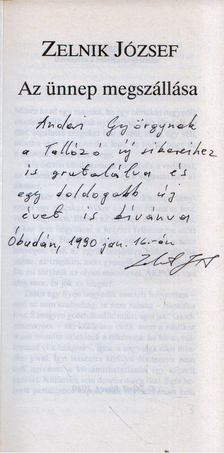 ZELNIK JÓZSEF
Az ünnep megszállása
Andai Györgynek
a Tallózó új sikereihez
is gratulálva és
egy boldogabb új
évet is kívánva
Óbudán, 1990 jan. 16-án